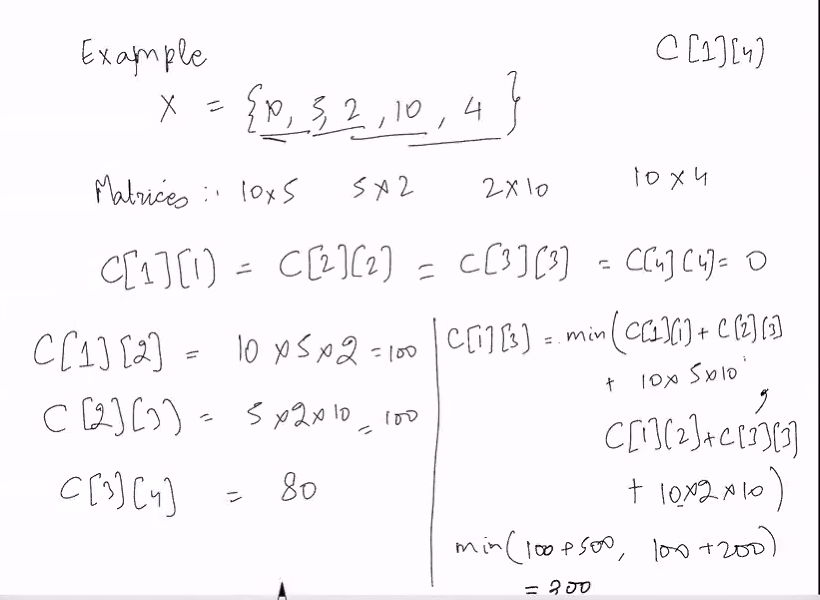 Example
C[1][4]
X = {10, 5, 2, 10, 4}
Matrices :. 10x5 5x2 2x10 10x4
C[1][1] = C[2][2] = C[3][3] = C[4][4] = 0
C[1][2] = 10x5x2 = 100
C[2][3] = 5x2x10 = 100
C[3][4] = 80
C[1][3] = min(C[1][1] + C[2][3]
+ 10x5x10,
C[1][2] + C[3][3]
+ 10x2x10)
min(100+500, 100+200)
= 300